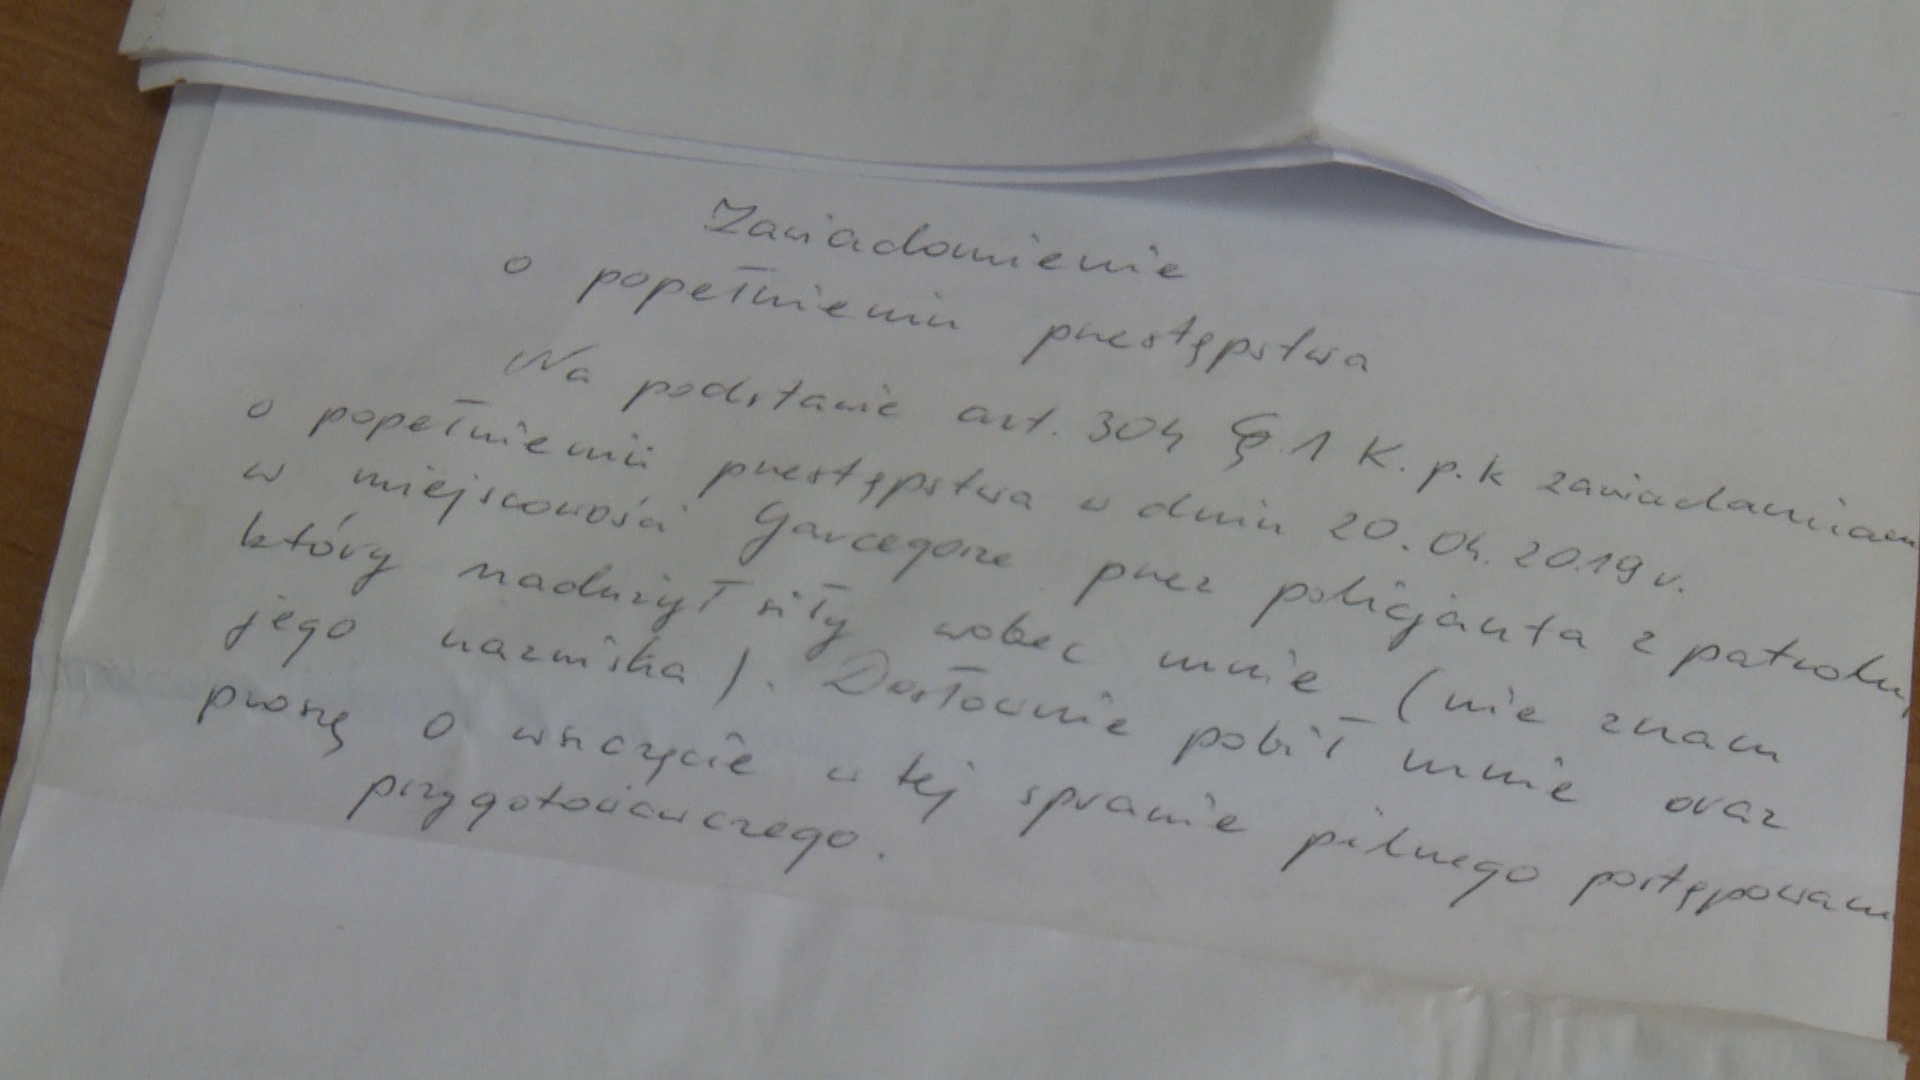 Zawiadomienie
o popełnieniu przestępstwa
Na podstawie art. 304 §.1 K.p.k zawiadamiam
o popełnieniu przestępstwa w dniu 20.04.2019 r.
w miejscowości Garcegorze przez policjanta z patrolu,
który nadużył siły wobec mnie (nie znam
jego nazwiska). Dosłownie pobił mnie oraz
proszę o wszczęcie w tej sprawie pilnego postępowani
przygotowawczego.